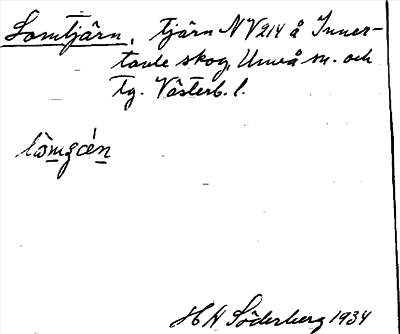 Lomtjärn, tjärn NV 214 å Inner-
tavle skog, Umeå sn. och
tg. Västerb. l.
H A Söderberg 1934